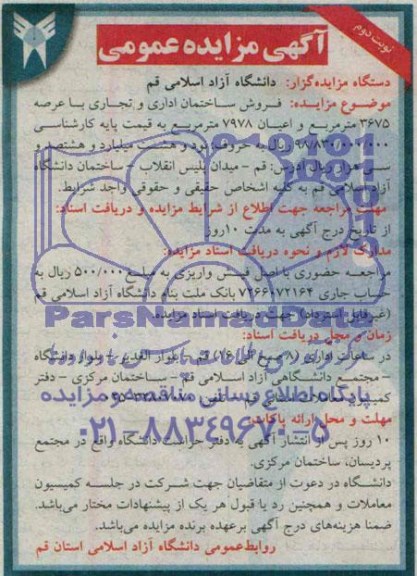 نوبت دوم
آگهی مزایده عمومی
دستگاه مزایده‌گزار: دانشگاه آزاد اسلامی قم
موضوع مزایده: فروش ساختمان اداری و تجاری با عرصه
۳۶۷۵ مترمربع و اعیان ۷۹۷۸ مترمربع به قیمت پایه کارشناسی
ریال به حروف نود و هشت میلیارد و هشتصد و
سی ریال آدرس: قم - میدان پلیس انقلاب - ساختمان دانشگاه
آزاد اسلامی قم به کلیه اشخاص حقیقی و حقوقی واجد شرایط.
مهلت مراجعه جهت اطلاع از شرایط مزایده و دریافت اسناد:
از تاریخ درج آگهی به مدت ۱۰ روز
مدارک لازم و نحوه دریافت اسناد مزایده:
مراجعه حضوری با اصل فیش واریزی به مبلغ ۵۰۰/۰۰۰ ریال به
حساب جاری ۷۲۶۶۰۷۲۱۶۴ بانک ملت بنام دانشگاه آزاد اسلامی قم
(غیرقابل استرداد) جهت دریافت اسناد مزایده
ParsNamadData
زمان و محل دریافت اسناد:
در ساعات اداری (۸ صبح الی ۱۶) قم - بلوار الغدیر - بلوار دانشگاه
- مجتمع دانشگاهی آزاد اسلامی قم - ساختمان مرکزی - دفتر
پایگاه اطلاع رسانی مناقصه و مزایده
مهلت و محل ارائه پاکات:
۰۲۱-۸۸۳۴۹۶۷۰-۵
۱۰ روز پس از انتشار آگهی به دفتر حراست دانشگاه واقع در مجتمع
پردیسان، ساختمان مرکزی.
دانشگاه در دعوت از متقاضیان جهت شرکت در جلسه کمیسیون
معاملات و همچنین رد یا قبول هر یک از پیشنهادات مختار می‌باشد.
ضمنا هزینه‌های درج آگهی برعهده برنده مزایده می‌باشد.
روابط‌عمومی دانشگاه آزاد اسلامی استان قم